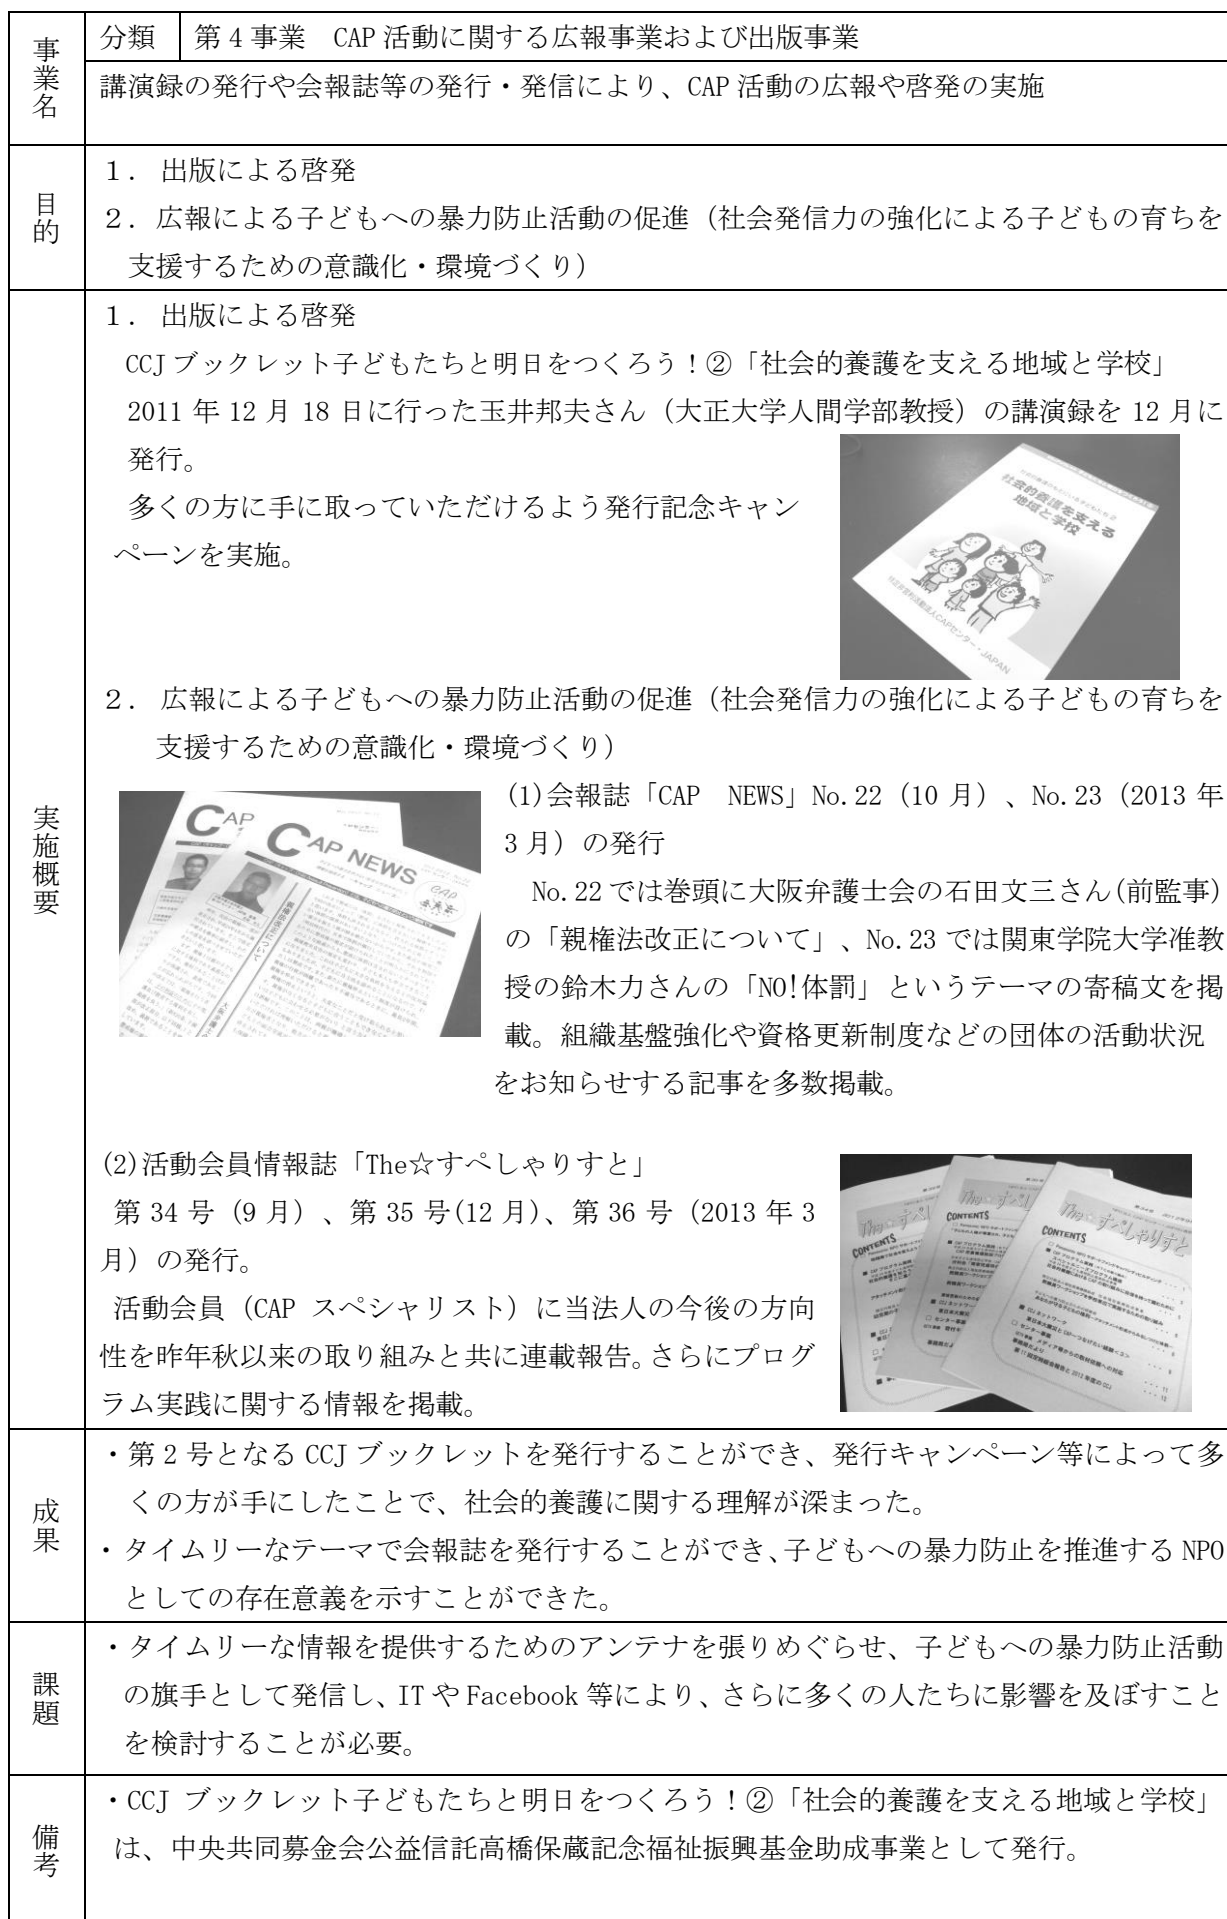 事業名
分類 第４事業　CAP 活動に関する広報事業および出版事業
講演録の発行や会報誌等の発行・発信により、CAP 活動の広報や啓発の実施
目的
１. 出版による啓発
２. 広報による子どもへの暴力防止活動の促進（社会発信力の強化による子どもの育ちを
支援するための意識化・環境づくり）
実施概要
１. 出版による啓発
CCJ ブックレット子どもたちと明日をつくろう！②「社会的養護を支える地域と学校」
2011 年 12 月 18 日に行った玉井邦夫さん（大正大学人間学部教授）の講演録を 12 月に
発行。
多くの方に手に取っていただけるよう発行記念キャン
ペーンを実施。
社会的養護を支える
地域と学校
特定非営利活動法人CAPセンター・JAPAN
２. 広報による子どもへの暴力防止活動の促進（社会発信力の強化による子どもの育ちを
支援するための意識化・環境づくり）
CAP
CAP NEWS
CAP
親権法改正について
(1)会報誌「CAP　NEWS」No.22（10 月）、No.23（2013 年
3 月）の発行
No.22 では巻頭に大阪弁護士会の石田文三さん(前監事)
の「親権法改正について」、No.23 では関東学院大学准教
授の鈴木力さんの「NO!体罰」というテーマの寄稿文を掲
載。組織基盤強化や資格更新制度などの団体の活動状況
をお知らせする記事を多数掲載。
(2)活動会員情報誌「The☆すぺしゃりすと」
第 34 号（9 月）、第 35 号(12 月)、第 36 号（2013 年 3
月）の発行。
活動会員（CAP スペシャリスト）に当法人の今後の方向
性を昨年秋以来の取り組みと共に連載報告。さらにプログ
ラム実践に関する情報を掲載。
The☆すぺしゃりすと
CONTENTS
CONTENTS
CONTENTS
成果
・第 2 号となる CCJ ブックレットを発行することができ、発行キャンペーン等によって多
くの方が手にしたことで、社会的養護に関する理解が深まった。
・タイムリーなテーマで会報誌を発行することができ、子どもへの暴力防止を推進する NPO
としての存在意義を示すことができた。
課題
・タイムリーな情報を提供するためのアンテナを張りめぐらせ、子どもへの暴力防止活動
の旗手として発信し、IT や Facebook 等により、さらに多くの人たちに影響を及ぼすこと
を検討することが必要。
備考
・CCJ ブックレット子どもたちと明日をつくろう！②「社会的養護を支える地域と学校」
は、中央共同募金会公益信託高橋保蔵記念福祉振興基金助成事業として発行。